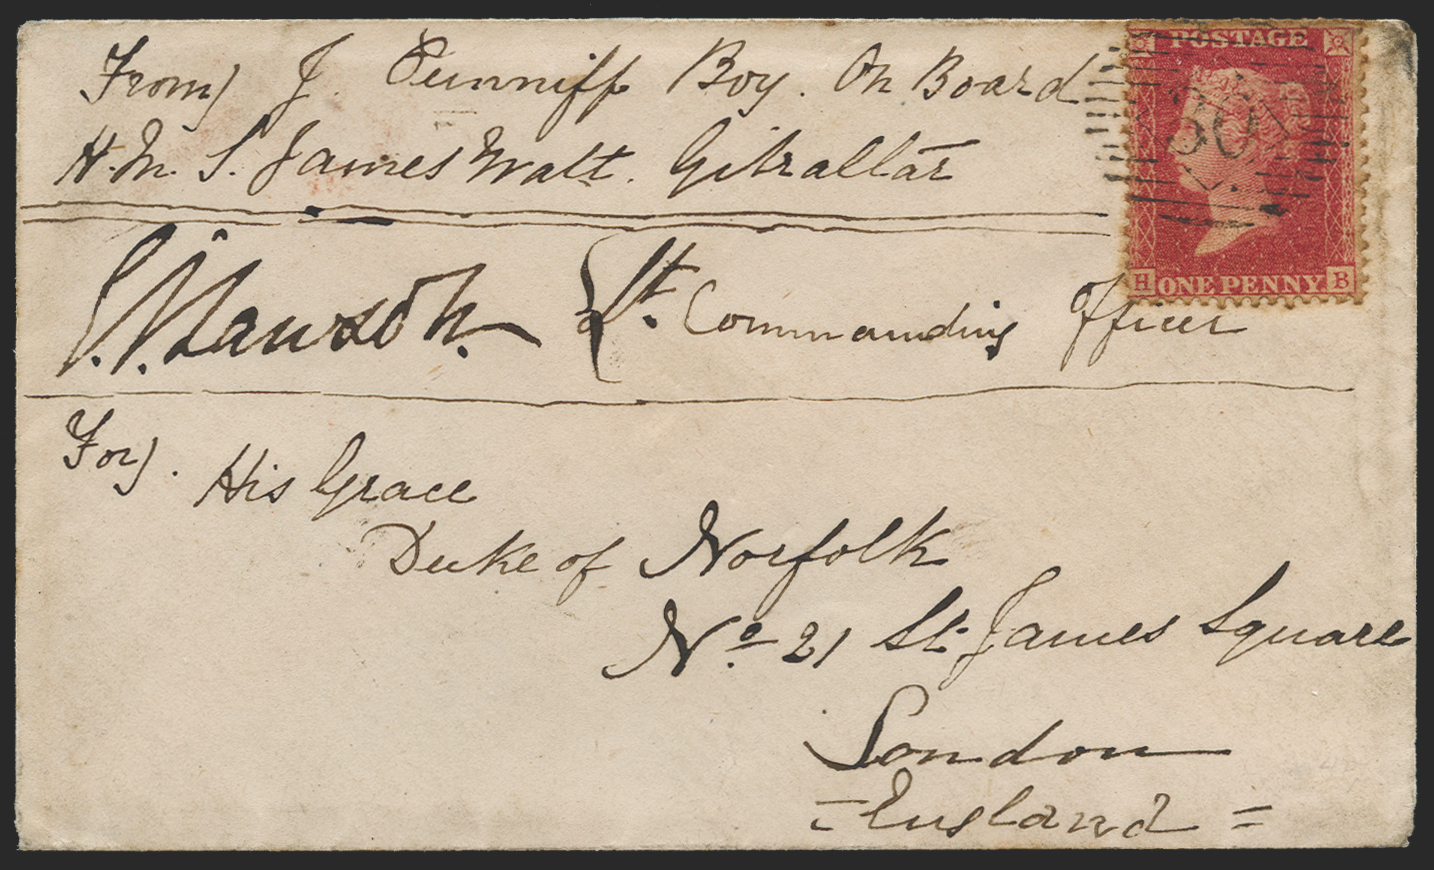 From) J. Cunniff Boy. On Board
H.M.S. James Watt. Gibraltar
Lt. Commanding Officer
For). His Grace
Duke of Norfolk
No 21 St. James Square
London
= England =
POSTAGE
H ONE PENNY B